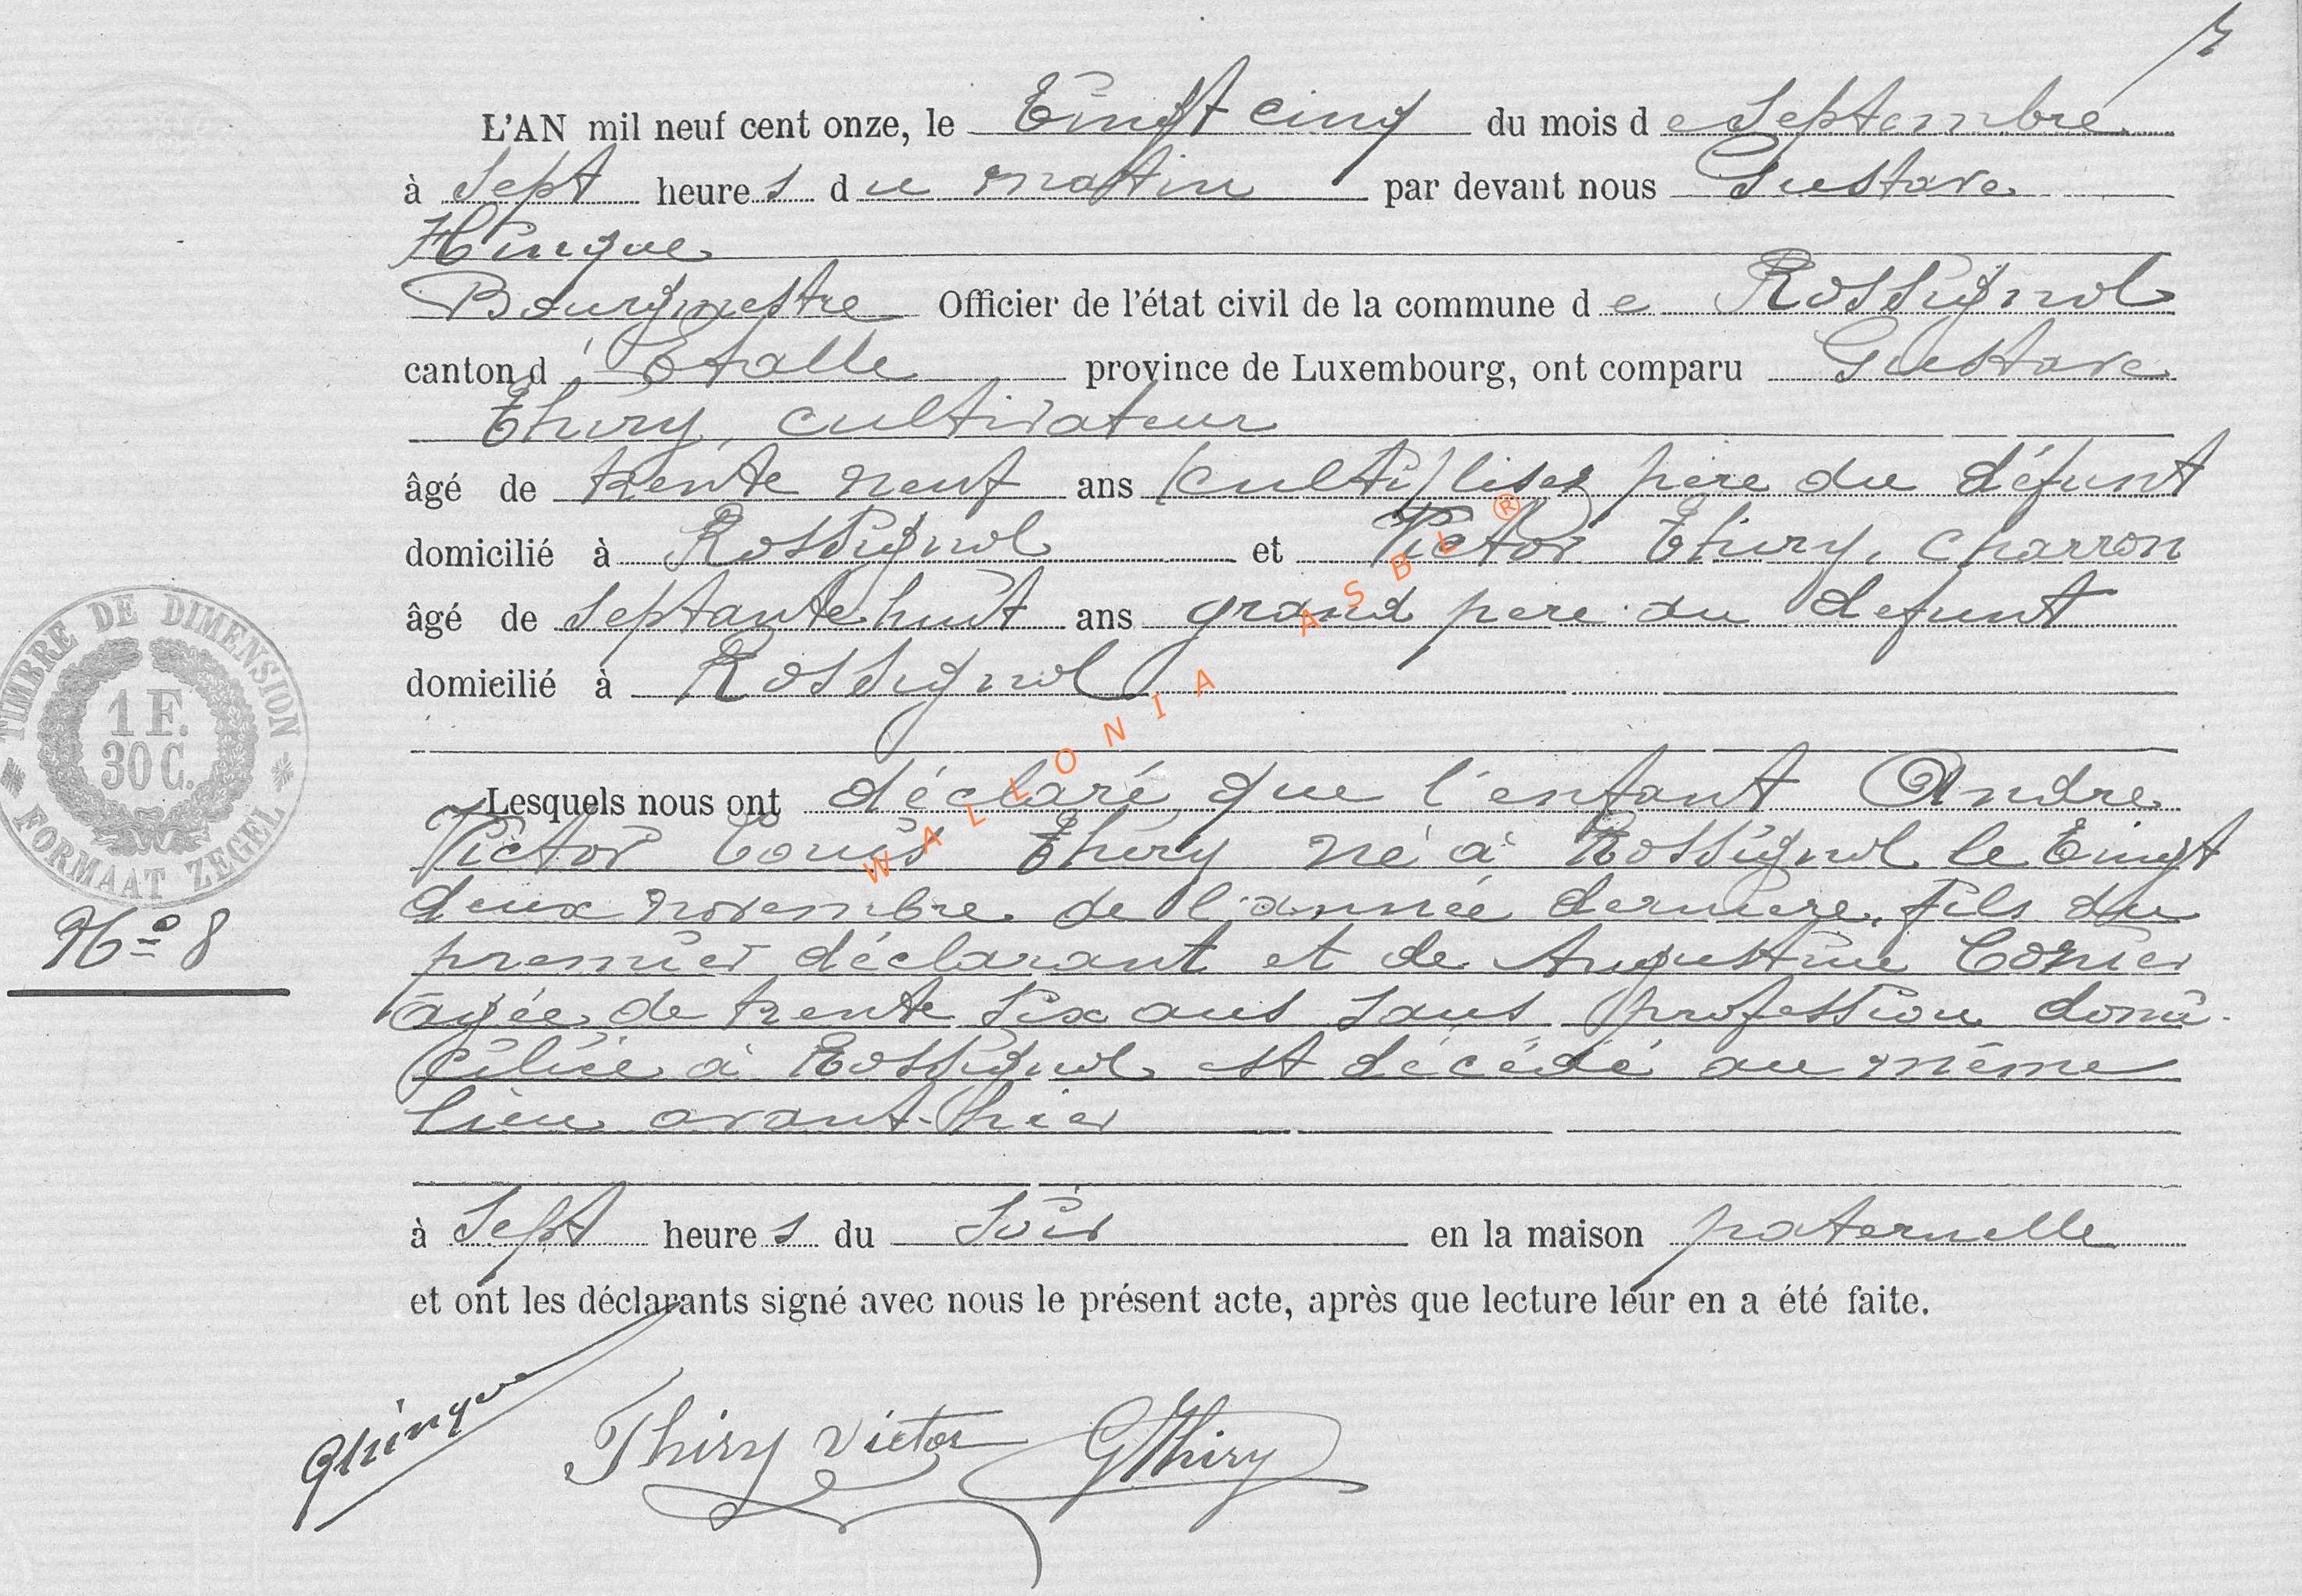 7
L'AN mil neuf cent onze, le Vingt cinq du mois de Septembre
à Sept heures du matin par devant nous Gustave
Hinque
Bourgmestre Officier de l'état civil de la commune de Rossignol
canton d'Etalle province de Luxembourg, ont comparu Gustave
Thiry, cultivateur
âgé de trente neuf ans père du défunt
domicilié à Rossignol et Victor Thiry, charron
âgé de septante huit ans grand père du defunt
domicilié à Rossignol
Lesquels nous ont déclaré que l'enfant Andre
Victor Louis Thiry né à Rossignol le Vingt
deux novembre de l'année derniere, fils du
premier déclarant et de Augustine
agée de trente six ans sans profession domi-
ciliée à Rossignol est décédé au même
lieu avant-hier
à Sept heures du Soir en la maison paternelle
et ont les déclarants signé avec nous le présent acte, après que lecture leur en a été faite.
GHinque Thiry Victor GThiry
TIMBRE DE DIMENSION
1 F.
30 C.
FORMAAT ZEGEL
No 8
WALLONIA ASBL ®